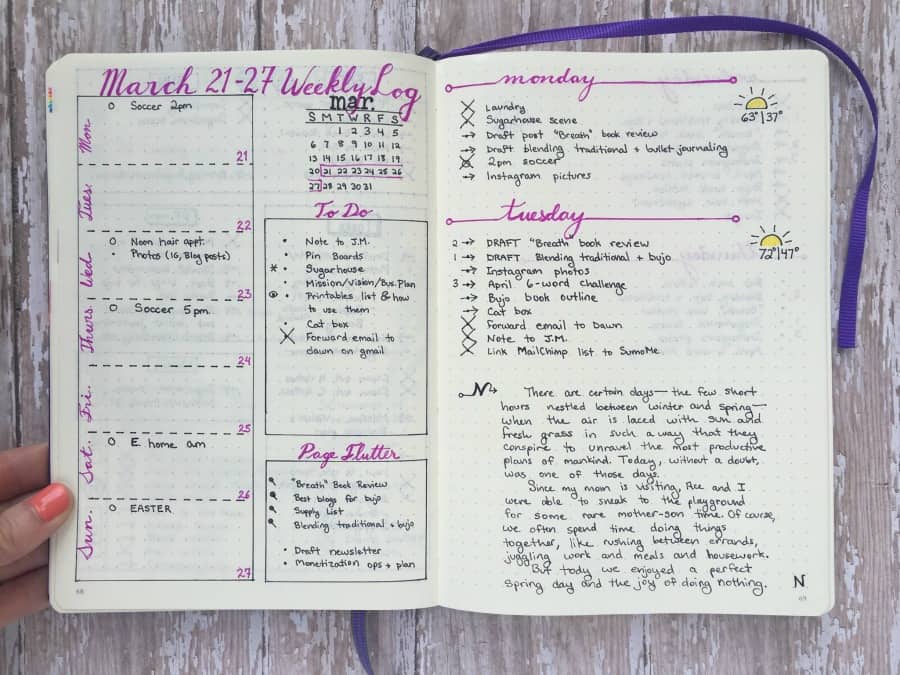 March 21-27 Weekly Log
Mon.
Soccer 2pm
21
Tues.
22
Wed.
Noon hair appt.
Photos (IG, Blog posts)
23
Thurs.
Soccer 5pm
24
Fri.
25
Sat.
E. home am
26
Sun.
EASTER
27
68
mar.
S M T W R F S
1 2 3 4 5
6 7 8 9 10 11 12
13 14 15 16 17 18 19
20 21 22 23 24 25 26
27 28 29 30 31
To Do
• Note to J.M.
• Pin Boards
* • Sugarhouse
• Mission/Vision/Bus. Plan
• Printables list & how
to use them
• Cat box
X Forward email to
dawn on gmail
Page Flutter
"Breath" Book Review
Best blogs for bujo
Supply List
Blending traditional + bujo
• Draft newsletter
• Monetization ops + plan
monday
63° | 37°
X Laundry
X Sugarhouse scene
→ Draft post "Breath" book review
→ Draft blending traditional + bullet journaling
X 2pm soccer
→ Instagram pictures
tuesday
72° | 47°
2 → DRAFT "Breath" book review
1 → DRAFT Blending traditional + bujo
→ Instagram photos
3 → April 6-word challenge
→ Bujo book outline
→ Cat box
X Forward email to Dawn
X Note to J.M.
X Link MailChimp list to SumoMe
N → There are certain days — the few short
hours nestled between winter and spring —
when the air is laced with sun and
fresh grass in such a way that they
conspire to unravel the most productive
plans of mankind. Today, without a doubt,
was one of those days.
Since my mom is visiting, Ace and I
were able to sneak to the playground
for some rare mother-son time. Of course,
we often spend time doing things
together, like rushing between errands,
juggling work and meals and housework.
But tody we enjoyed a perfect
spring day and the joy of doing nothing.
N
69